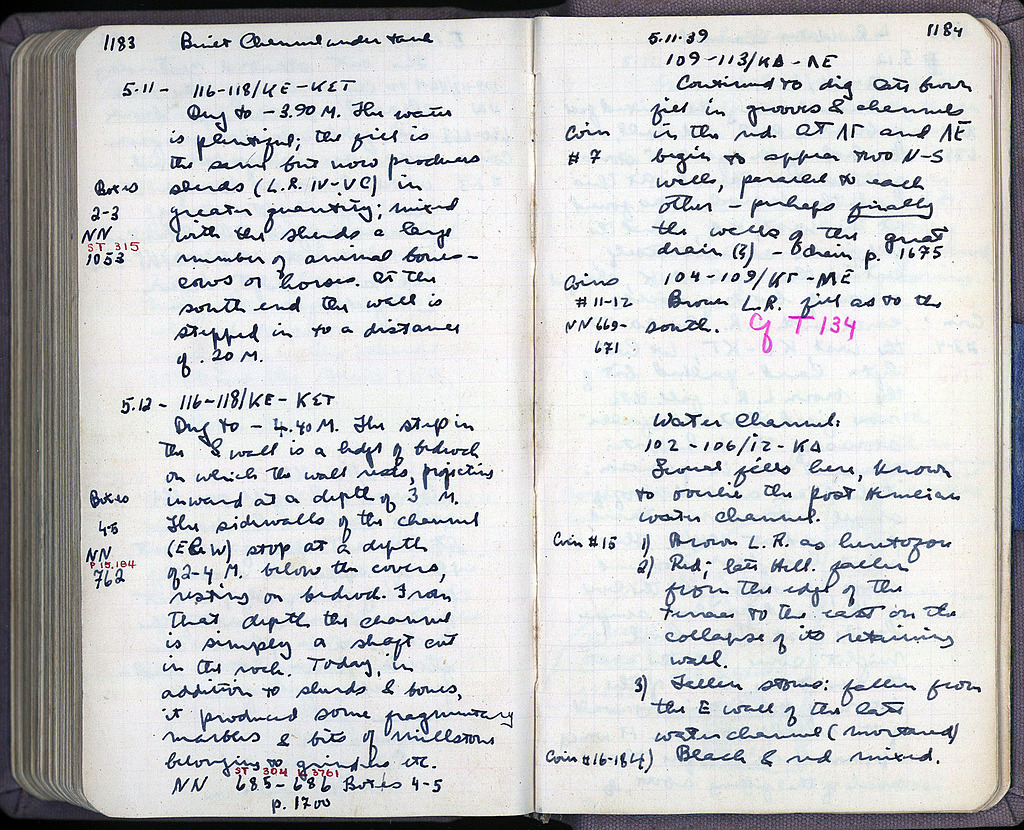 1183 Built Channel under tank
5.11 - 116-118/KE-KET
Dug to -3.90 M. The water
is plentiful; the fill is
the same but now produces
Boxes sherds (L.R. IV-VC) in
2-3 greater quantity; mixed
NN with the sherds a large
ST 315
1053 number of animal bones -
cows or horses. At the
south end the wall is
stepped in to a distance
of .20 M.
5.12 - 116-118/KE-KET
Dug to -4.40 M. The step in
the S wall is a ledge of bedrock
on which the wall rests, projecting
Boxes inward at a depth of 3 M.
4-5 The sidewalls of the channel
NN (E & W) stop at a depth
P 15,184
762 of 2-4 M. below the covers,
resting on bedrock. From
that depth the channel
is simply a shaft cut
in the rock. Today, in
addition to sherds & bones,
it produced some fragmentary
marbles & bits of millstone
belonging to grinders etc.
ST 304 3761
NN 685-686 Boxes 4-5
p. 1700
5.11.39 1184
109-113/KA-ΛE
Continued to dig late brown
fill in grooves & channels
Coin in the red. At ΛΓ and ΛE
#7 begin to appear two N-S
walls, parallel to each
other - perhaps finally
the walls of the great
drain (?) - Drain p. 1675
Coins 104-109/KΓ-ME
#11-12 Brown L.R. fill as to the
NN 669- south. cf T 134
671
Water Channel:
102-106/ΙΖ-KA
Several fills here, known
to overlie the post Herulian
water channel.
Coin #15 1) Brown L.R. as heretofore
2) Red; late Hell. fallen
from the edge of the
terrace to the east on the
collapse of its retaining
wall.
3) Fallen stones: fallen from
the E wall of the late
water channel (mortared)
Coin #16-18 4) Black & red mixed.